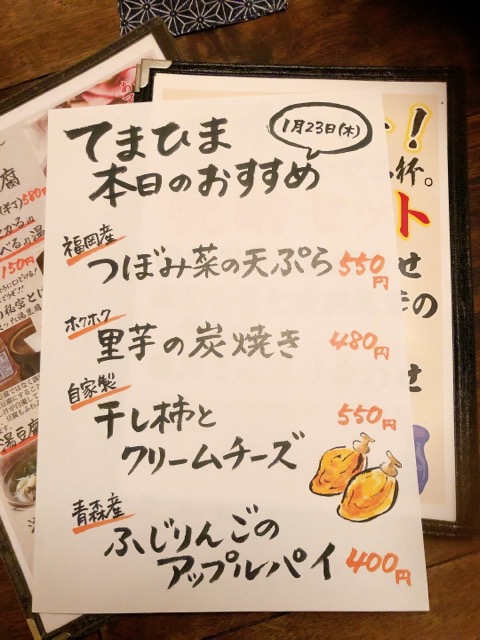 てまひま
1月23日(木)
本日のおすすめ
福岡産
つぼみ菜の天ぷら 550円
ホクホク
里芋の炭焼き 480円
自家製
干し柿と 550円
クリームチーズ
青森産
ふじりんごの
アップルパイ 400円
腐
580
150円
湯豆腐
!
杯。
ト
せ
の
せ